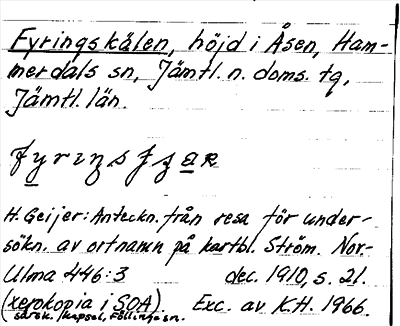 Fyringskålen, höjd i Åsen, Ham-
merdals sn, Jämtl. n. doms. tg,
Jämtl. län.
H. Geijer: Anteckn. från resa för under-
sökn. av ortnamn på kartbl. Ström. Nor-
Ulma 446:3 dec. 1910, s. 21.
(xerokopia i SOA) Exc. av K.H. 1966.
särsk. kapsel, Föllinge sn.